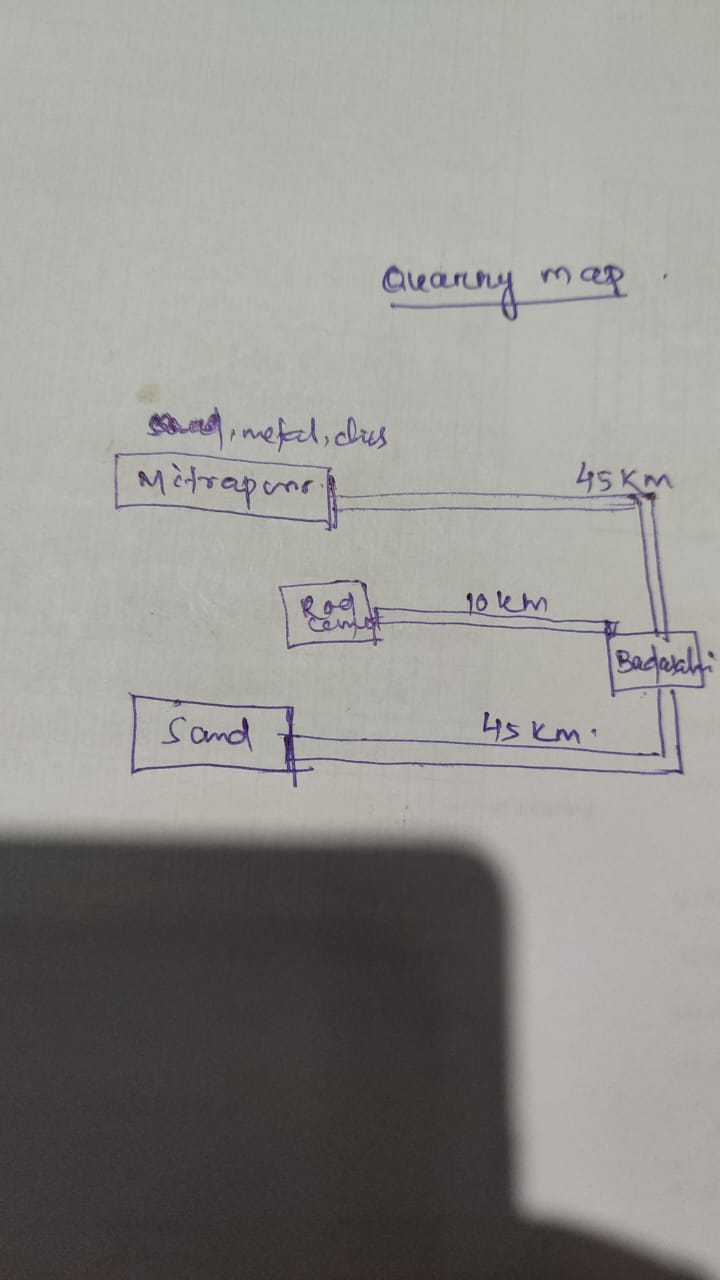 Quarry map
, metal,
Mitrapur
45 Km
Rod
10 km
Cement
Badasahi
Sand
45 Km.